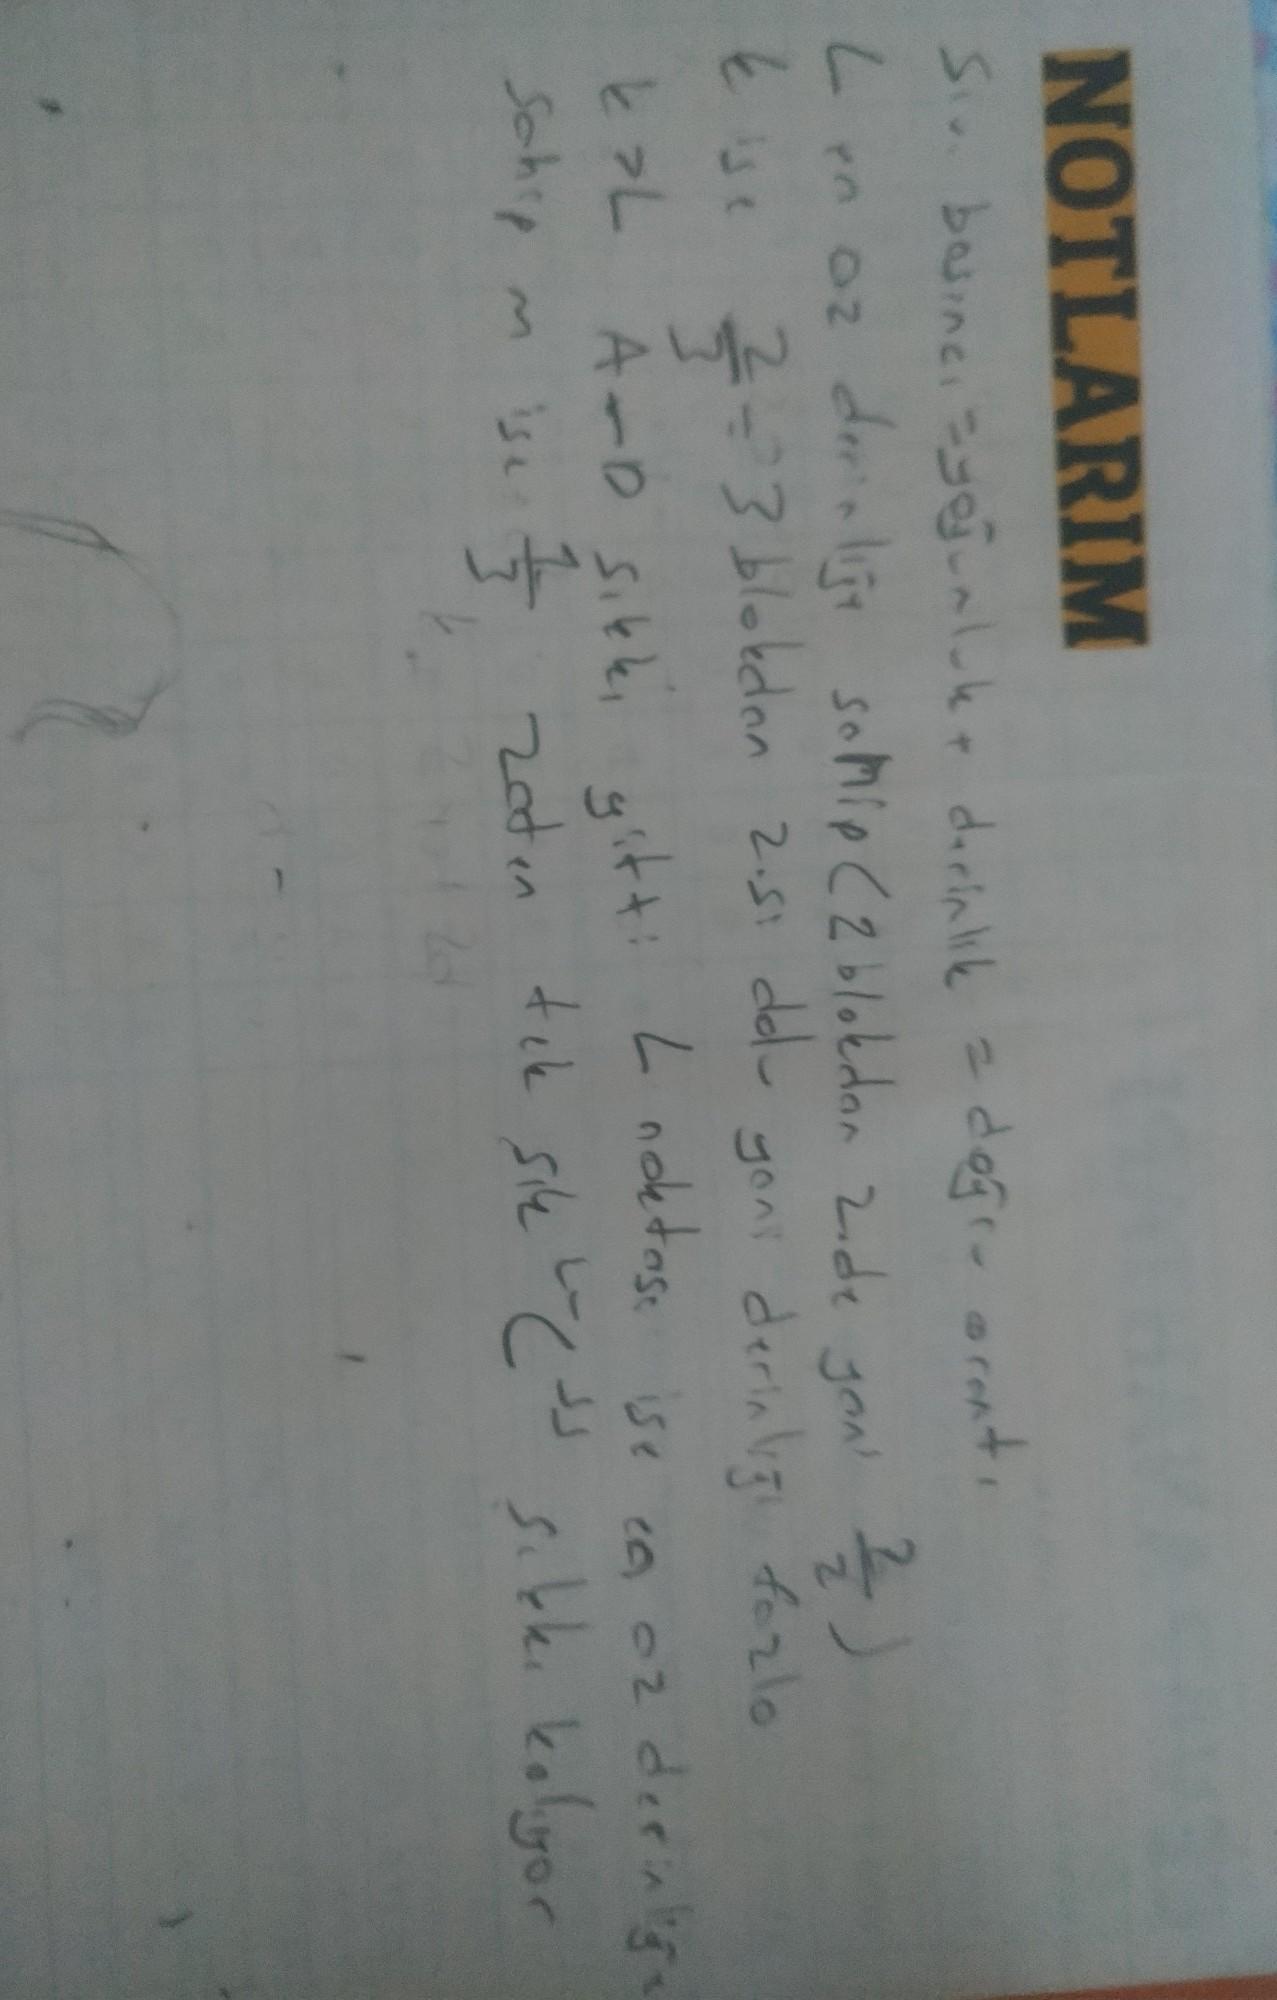 NOTLARIM
Sıvı basıncı = yoğunluk + derinlik = doğru orantı
L en az derinliğe sahip (2 blokdan 2.de yani 2/2)
k ise 2/3 = 3 blokdan 2.si dolu yani derinliği fazla
k > L A-D şıkkı gitti L noktası ise en az derinliğe
sahip m ise 1/3 zaten tek şık şıkkı kalıyor